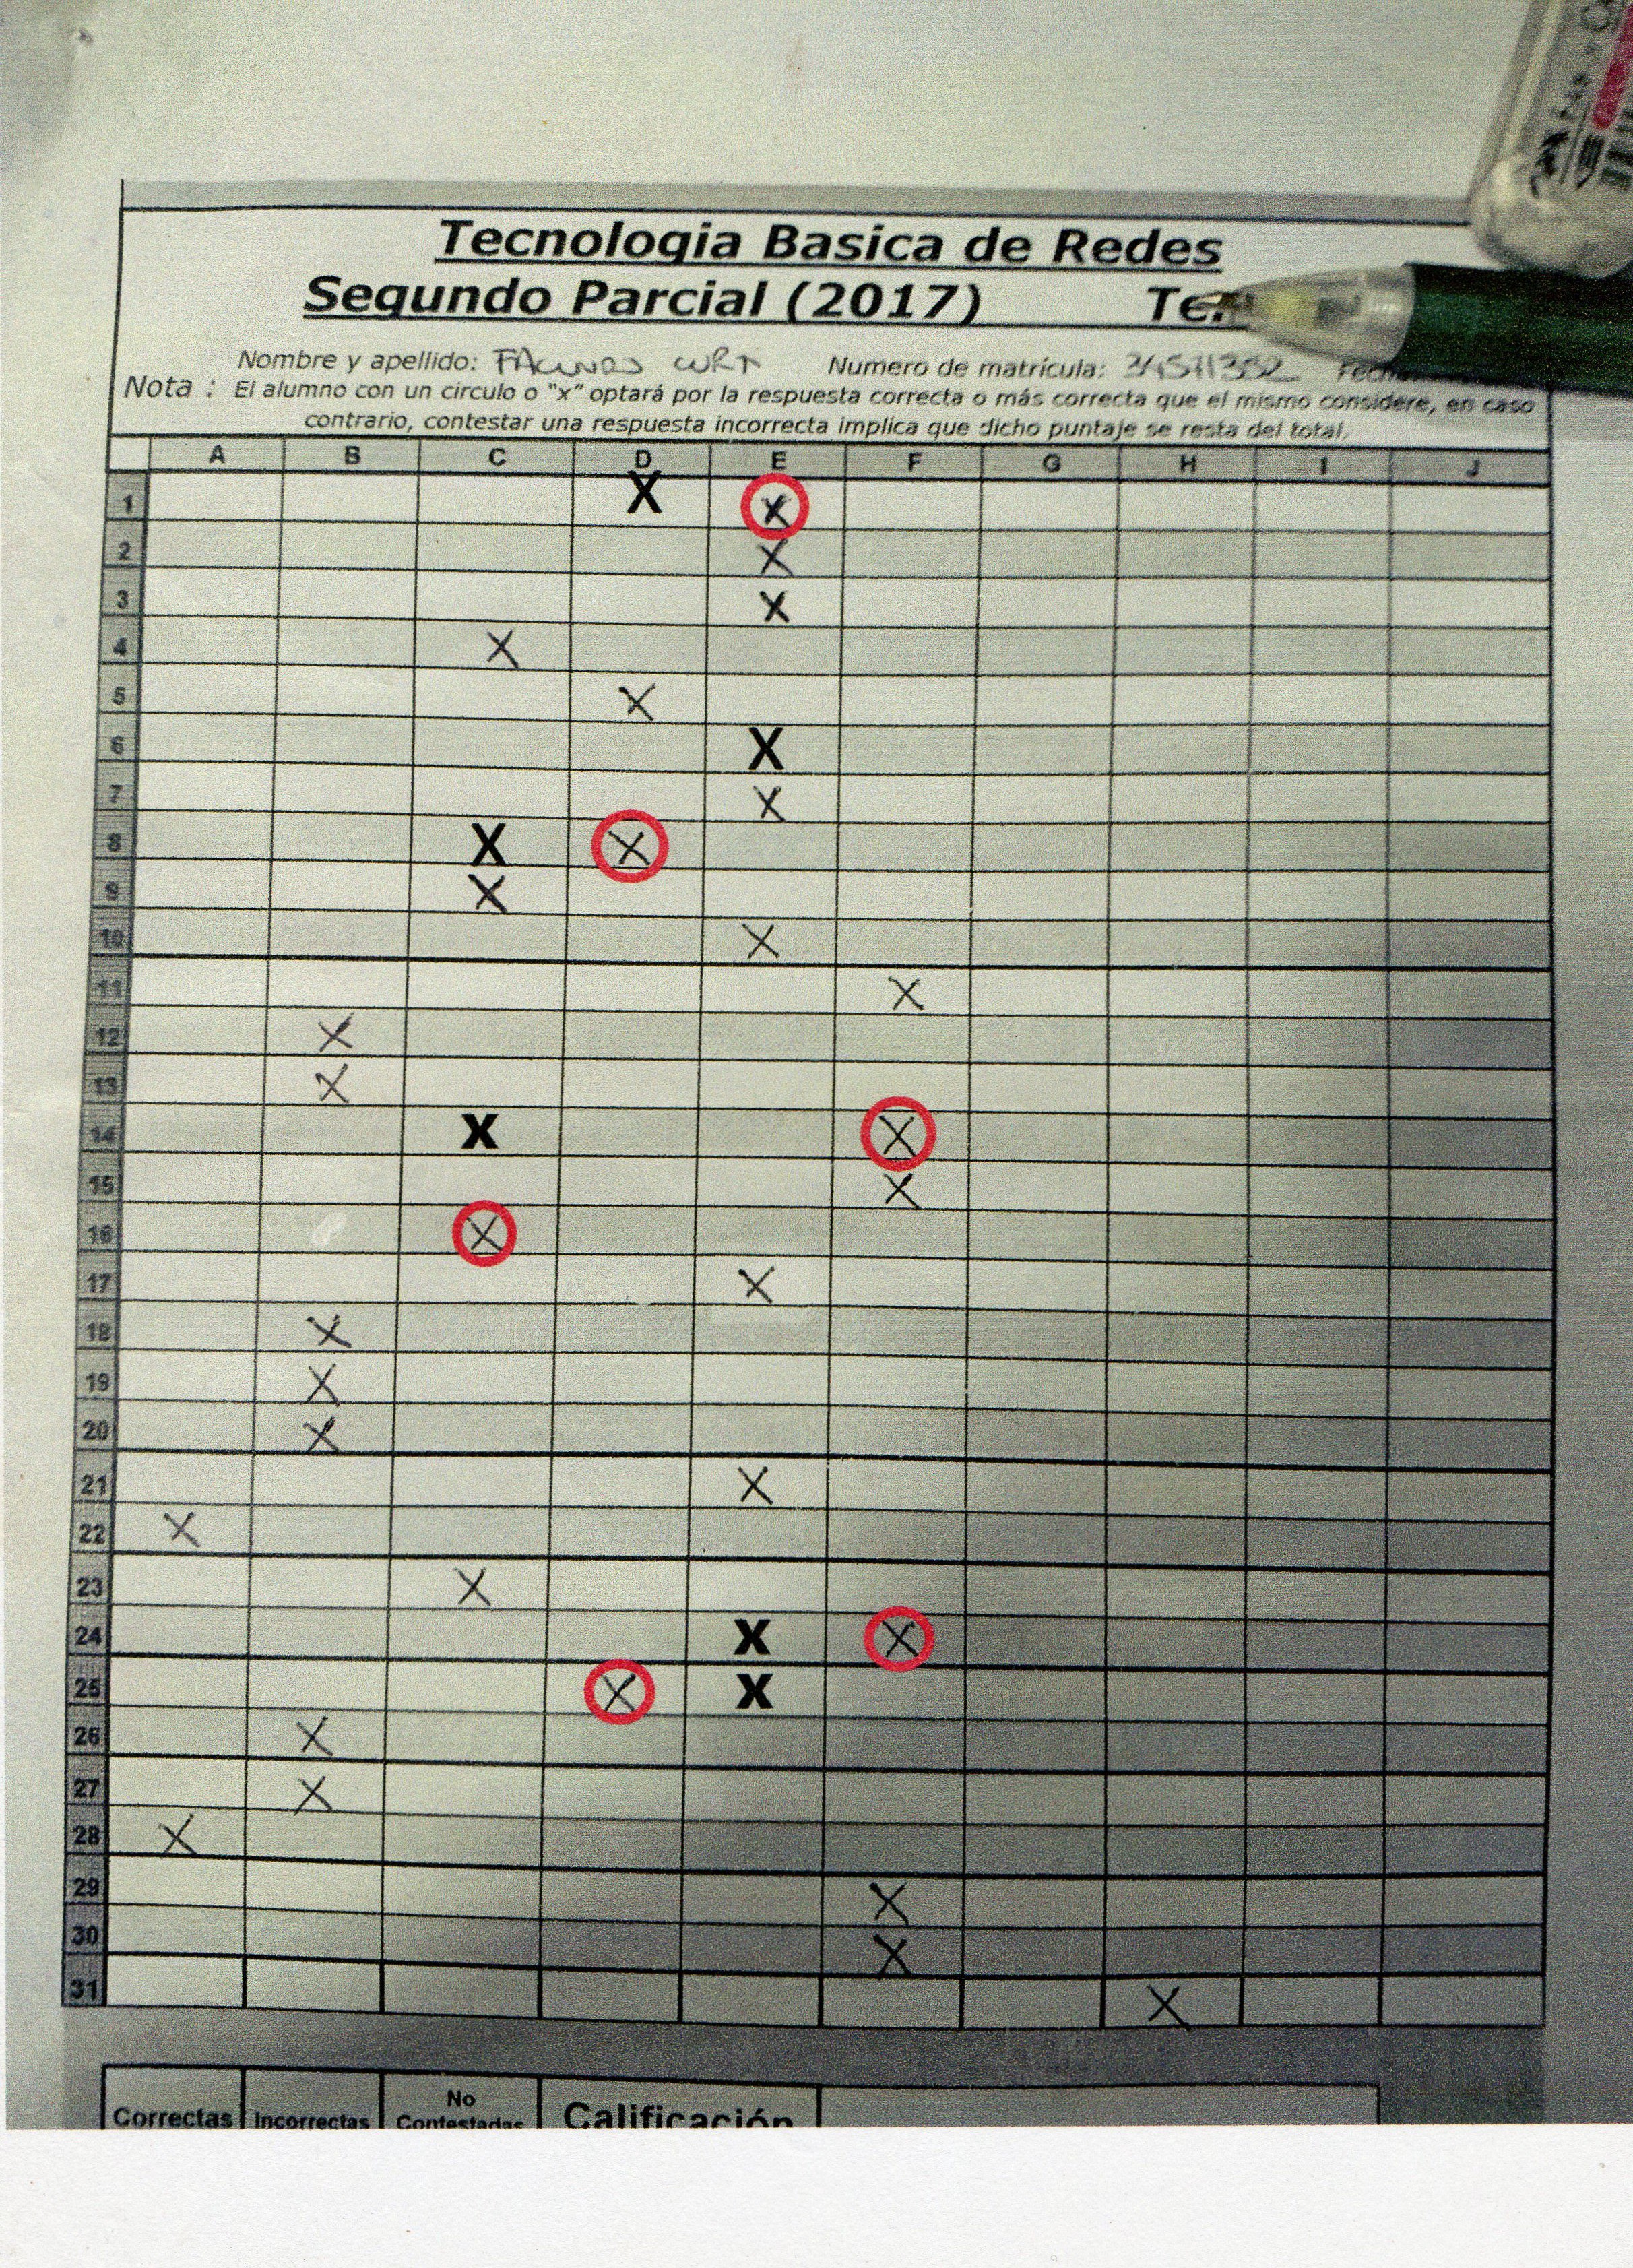 Tecnologia Basica de Redes
Segundo Parcial (2017)
Nombre y apellido: Numero de matrícula:
Nota : El alumno con un circulo o "x" optará por la respuesta correcta o más correcta que el mismo considere, en caso
contrario, contestar una respuesta incorrecta implica que dicho puntaje se resta del total.
A B C D E F G H I J
1 X X
2 X
3 X
4 X
5 X
6 X
7 X
8 X X
9 X
10 X
11 X
12 X
13 X
14 X X
15 X
16 X
17 X
18 X
19 X
20 X
21 X
22 X
23 X
24 X X
25 X X
26 X
27 X
28 X
29 X
30 X
31 X
Correctas Incorrectas No Contestadas Calificación